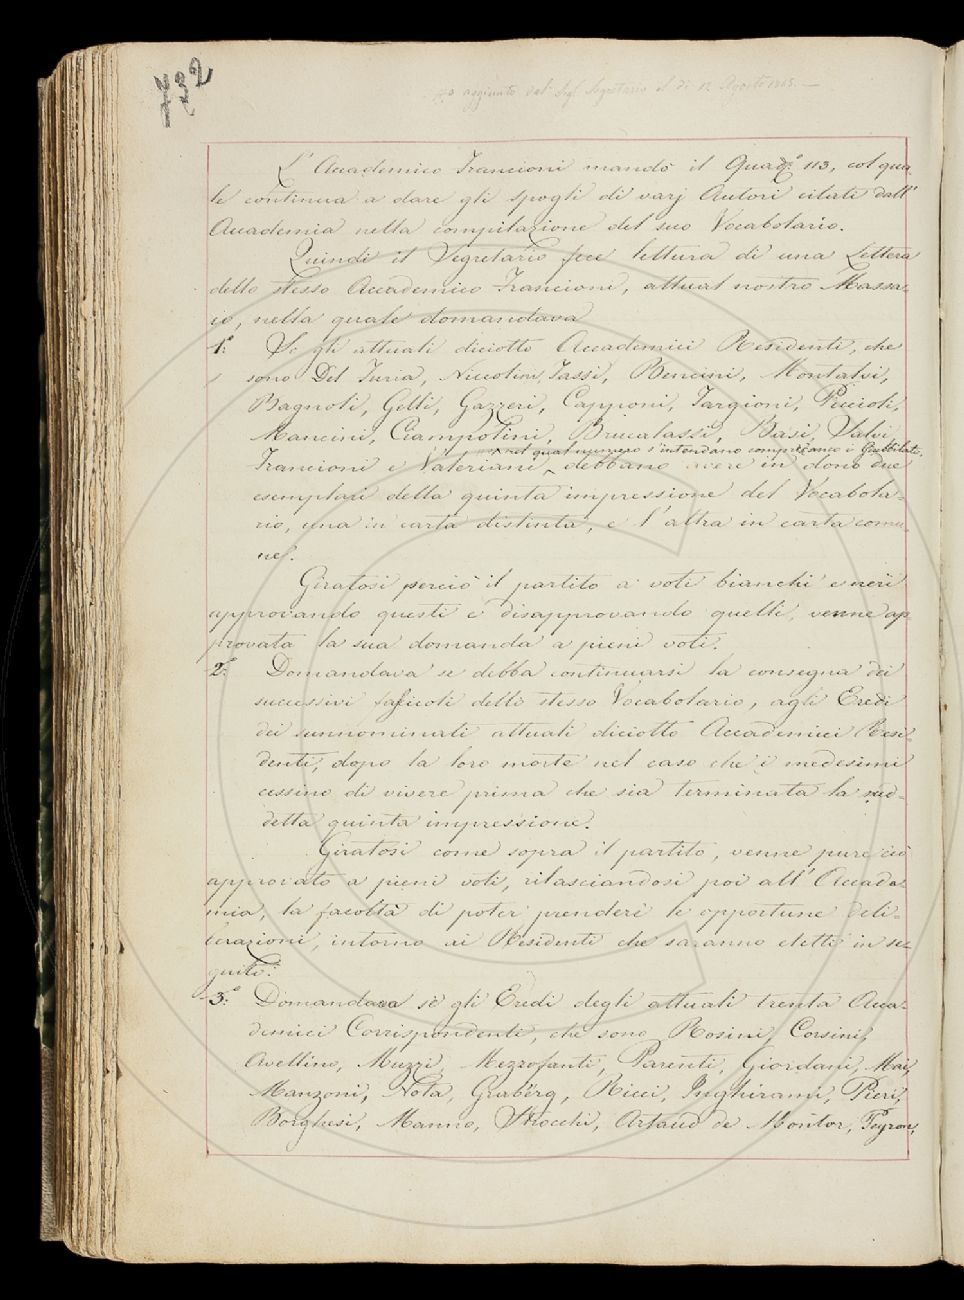 732
aggiunto dal Sig.r Segretario il dì 12 Agosto
L'Accademico Francioni mandò il Quad.º 113, col qua-
le continua a dare gli spogli di varj Autori citati dall'
Accademia nella compilazione del suo Vocabolario.
Quindi il Segretario fece lettura di una Lettera
dello stesso Accademico Francioni, attual nostro Massa-
io, nella quale domandava
1º: Se gli attuali diciotto Accademici Residenti, che
sono Del Furia, Niccolini, Tassi, Bencini, Montalvi,
Bagnoli, Gelli, Gazzeri, Capponi, Targioni, Puccioli,
Mancini, Ciampolini, Brucalassi, Basi, Salvi,
nel qual numero s'intendano compresi anco i Giubbilati,
Francioni e Valeriani, debbano avere in dono due
esemplari della quinta impressione del Vocabola-
rio, una in carta distinta, e l'altra in carta comu-
ne.
Giratosi perciò il partito a voti bianchi e neri
approvando questi e disapprovando quelli, venne ap-
provata la sua domanda a pieni voti.
2º: Domandava se debba continuarsi la consegna dei
successivi fascicoli dello stesso Vocabolario, agli Eredi
dei sunnominati attuali diciotto Accademici Resi-
denti, dopo la loro morte nel caso che i medesimi
cessino di vivere prima che sia terminata la sud-
detta quinta impressione.
Giratosi come sopra il partito, venne pure ciò
approvato a pieni voti, rilasciandosi poi all'Accade-
mia, la facoltà di poter prendere le opportune deli-
berazioni, intorno ai Residenti che saranno eletti in se-
guito.
3º: Domandava se gli Eredi degli attuali trenta Acca-
demici Corrispondenti, che sono Rosini, Corsini,
Avellino, Muzzi, Mezzofanti, Parenti, Giordani, Mai,
Manzoni, Nota, Graberg, Ricci, Inghirami, Pieri,
Borghesi, Manno, Strocchi, Artaud de Montor, Peyron,